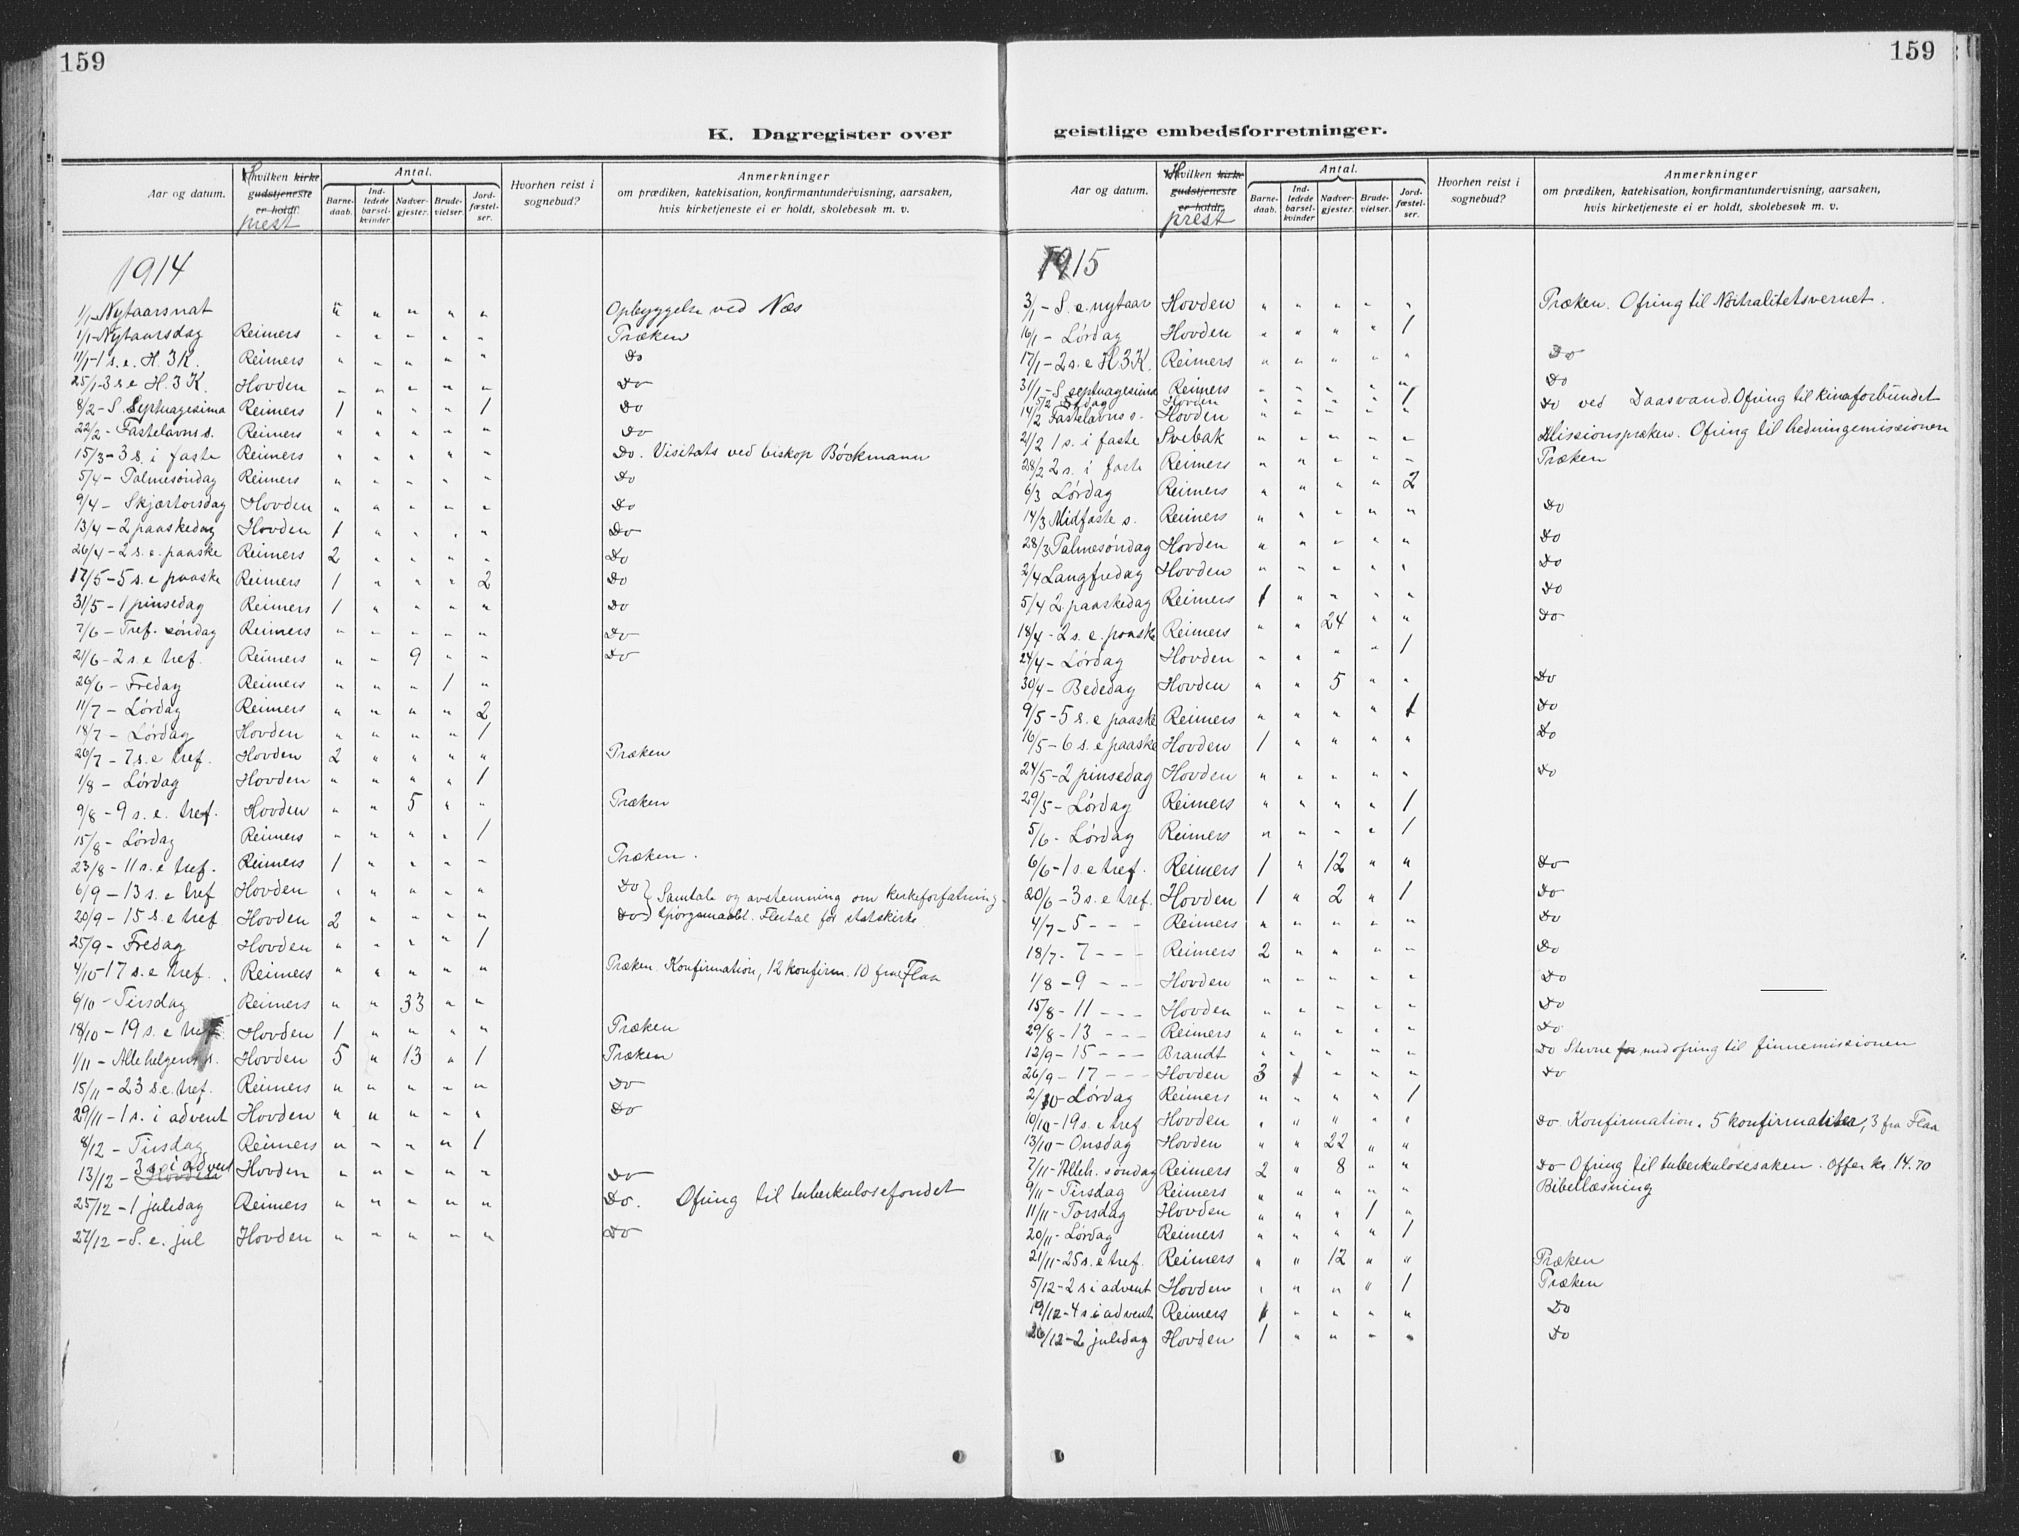 159
K. Dagregister over
Aar og datum.
Hvilken kirke gudstjeneste er holdt. prest
Antal.
Barnedaab.
Indledede barselkvinder
Nadvergjester.
Brudevielser.
Jordfæstelser.
Hvorhen reist i sognebud?
Anmerkninger
om prædiken, katekisation, konfirmantundervisning, aarsaken,
hvis kirketjeneste ei er holdt, skolebesøk m. v.
1914
1/1 - Nytaarsnat " " " " " Opbyggelse ved Næs
1/1 - Nytaarsdag Reimers " " " " " Præken
11/1 - 1 s. e. H. 3 K. Reimers " " " " " Do
25/1 - 3 s e H. 3 K. Hovden " " " " " Do
8/2 - S. Septuagesima Reimers 1 " " " 1 Do
22/2 - Fastelavns s. Reimers " " " " " Do
15/3 - 3 s. i faste Reimers " " " " " Do. Visitats ved biskop Bøckmann
5/4 - Palmesøndag Reimers " " " " " Do
9/4 - Skjærtorsdag Hovden " " " " " Do
13/4 - 2 paaskedag Hovden 1 " " " " Do
26/4 - 2 s. e. paaske Reimers 2 " " " " Do
17/5 - 5 s. e paaske Reimers 1 " " " 2 Do
31/5 - 1 pinsedag Reimers 1 " " " " Do
7/6 - Tref. søndag Reimers " " " " " Do
21/6 - 2 s. e tref. Reimers " " 9 " " Do
26/6 - Fredag Reimers " " " 1 "
11/7 - Lørdag Reimers " " " " 2
18/7 - Lørdag Hovden " " " " 1
26/7 - 7 s. e tref. Hovden 2 " " " " Præken
1/8 - Lørdag Hovden " " " " 1
9/8 - 9 s. e. tref. Hovden " " 5 " " Præken
15/8 - Lørdag Reimers " " " " 1
23/8 - 11 s. e tref. Reimers 1 " " " " Præken.
6/9 - 13 s. e tref Hovden " " " " " Do } Samtale og avstemning om kirkeforfatning
20/9 - 15 s e tref Hovden 2 " " " " Do } spørgsmaalet. Flertal for statskirke
25/9 - Fredag Hovden " " " " 1
4/10 - 17 s. e tref. Reimers " " " " " Præken. Konfirmation, 12 konfirm. 10 fra Flaa
6/10 - Tirsdag Reimers " " 33 " "
18/10 - 19 s. e tref Hovden 1 " " " " Præken
1/11 - Allehelgens s. Hovden 5 " 13 " 1 Præken
15/11 - 23 s. e. tref. Reimers " " " " " Do
29/11 - 1 s. i advent Hovden " " " " " Do
8/12 - Tirsdag Reimers " " " " 1
13/12 - 3 s. i advent Hovden " " " " " Do
25/12 - 1 juledag Reimers " " " " " Do. Ofring til tuberkulosefondet
27/12 - S. e. jul Hovden " " " " " Do
159
geistlige embedsforretninger.
Aar og datum.
Hvilken kirke gudstjeneste er holdt. prest
Antal.
Barnedaab.
Indledede barselkvinder
Nadvergjester.
Brudevielser.
Jordfæstelser.
Hvorhen reist i sognebud?
Anmerkninger
om prædiken, katekisation, konfirmantundervisning, aarsaken,
hvis kirketjeneste ei er holdt, skolebesøk m. v.
1915
3/1 - S. e. nytaar Hovden " " " " " Præken. Ofring til Nøitralitetsvernet.
16/1 - Lørdag Hovden " " " " 1
17/1 - 2 s. e H 3 K. Reimers " " " " " Do
31/1 - S septuagesima Reimers " " " " " Do
5/2 Hovden " " " " 1
14/2 Fastelavns s. Hovden " " " " " Do ved Daasvand. Ofring til kinaforbundet
21/2 1 s. i faste Svebak " " " " " Missionspræken. Ofring til hedningemissionen
28/2 2 s. i faste Reimers " " " " " Præken
6/3 Lørdag Reimers " " " " 2
14/3 Midfaste s. Reimers " " " " " Do
28/3 Palmesøndag Hovden " " " " " Do
2/4 Langfredag Hovden " " " " " Do
5/4 2 paaskedag Reimers 1 " " " " Do
18/4 - 2 s. e. paaske Reimers " " 24 " " Do
24/4 - Lørdag Hovden " " " " 1
30/4 - Bededag Hovden " " 5 " " Do
9/5 - 5 s. e paaske Reimers " " " " 1 Do
16/5 - 6 s. e paaske Hovden 1 " " " " Do
24/5 - 2 pinsedag Hovden " " " " " Do
29/5 - Lørdag Reimers " " " " 1
5/6 - Lørdag Reimers " " " " 1
6/6 - 1 s. e tref. Reimers 1 " 12 " " Do
20/6 - 3 s. e tref. Hovden 1 " 2 " 1 Do
4/7 - 5 - - - Reimers " " " " " Do
18/7 - 7 - - - Reimers 2 " " " " Do
1/8 - 9 - - - Hovden " " " " " Do
15/8 - 11 - - - Hovden " " " " " Do
29/8 - 13 - - - Reimers " " " " " Do
12/9 - 15 - - - Brandt " " " " " Do Stevne for med ofring til finnemissionen
26/9 - 17 - - - Hovden 3 1 " " " Do
2/10 Lørdag Reimers " " " " 1
10/10 - 19 s. e tref Hovden " " " " " Do. Konfirmation. 5 konfirmanter, 3 fra Flaa
13/10 - Onsdag Hovden " " 22 " "
7/11 - Alleh. søndag Reimers 2 " 8 " " Do Ofring til tuberkulosesaken. Offer kr. 14.70
9/11 - Tirsdag Reimers " " " " " Bibellæsning
11/11 - Torsdag Hovden " " " 1 "
20/11 - Lørdag Reimers " " " " 1
21/11 - 25 s. e tref. Reimers " " 12 " " Præken
5/12 - 2 s i advent Hovden " " " " 1 Præken
19/12 - 4 s i advent Reimers 1 " " " " Do
26/12 - 2 juledag Hovden 1 " " " " Do